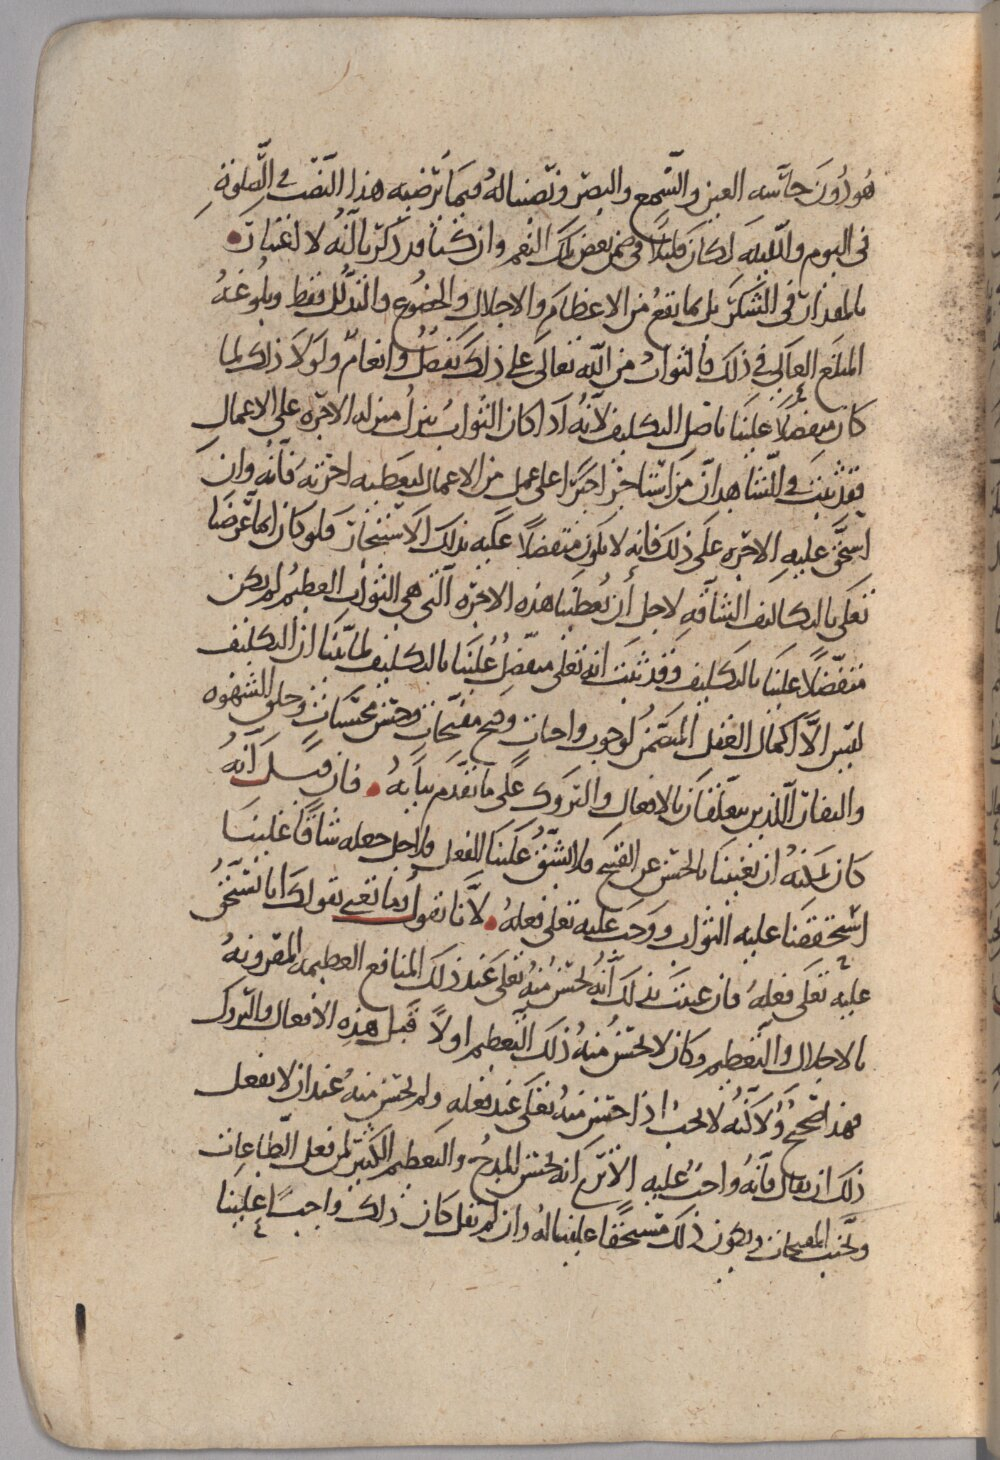 هو دُونَ حاسّه العين والسّمع والبصر وتصننا لهُ فيما نرضيه هذا النصّب في الصلوة
في اليوم والليلة لكان قليلًا في ضمن بعض تلك النعم وان كنا قد ذكرنا انّه لا اعتبار
بالمقدار في الشكر بل بما يقع من الاعظام والاجلال والخضوع والتذلّل فقط وبلوغهُ
المبلغ العالي في ذلك فالثواب من الله تعالى على ذلك تفضل وانعام ولولا ذلك لما
كان متفضلًا علينا باصل التكليف لانّه اذا كان الثوابُ ينزل منزله الاجره على الاعمال
فقد ثبت في الشاهد انّ من استاجر اجيرًا على عمل من الاعمال ليعطيه اجرته فانّه وان
استحق عليه الاجره على ذلك فانه لا يكون متفضلًا عليه بذلك الاستيجار فلو كان انما عرّضنا
تعلى بالتكاليف الشاقّه لاجل أن يُعطينا هذه الاجره الّتي هي الثواب العظيم لم يكن
متفضّلًا علينا بالتكليف وقد ثبت انه تعلى متفضّلٌ علينا بالتكليف لما بيّنا ان التكليف
ليس الّا اكمال العقل المتضمّن لوجوب واجبات وقبح مقبّحات وحسن محسّنات وخلق الشهوه
والنفار اللّذين يتعلّقان بالافعال والتروك على ما تقدم بيانهُ فان قيل انّه
كان يمكنهُ ان يغنينا بالحسن عن القبيح ولا يشقّ علينا الفعل فلاجل جعله شاقًا علينا
استحققنا عليه الثواب ووجب عليه تعلى فعلهُ لانّا نقول وما تعنى بقولك انا نستحق
عليه تعلى فعلهُ فان عنيت بذلك أنّه يحسُن منهُ تعلى عند ذلك المنافع العظيمه المقرونهُ
بالاجلال والتّعظيم وكان لا يحسن منهُ ذلك التّعظيم اولًا قبل هذه الافعال والتروك
فهذا صحيحٌ ولاكنّهُ لا يجب اذا حسن منهُ تعلى عند فعله ولم يحسن منهُ عند ان لا يفعل
ذلك ان يقال فانّهُ واجبٌ عليه الا ترى انه يحسن المدحُ والتعظيم الكثير لمن فعل الطّاعات
وتجنّب المقبحات ويكون ذلك مستحقًا علينا لهُ وان لم نقل كان ذلك واجبًا علينا